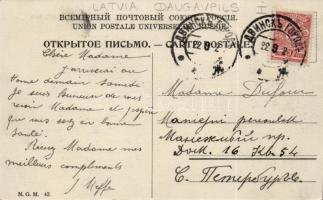 LATVIA DAUGAVPILS
ВСЕМІРНЫЙ ПОЧТОВЫЙ СОЮЗЪ. РОССІЯ.
UNION POSTALE UNIVERSELLE. RUSSIE.
ОТКРЫТОЕ ПИСЬМО. — CARTE POSTALE.
ДВИНСКЪ
ДВИНСКЪ
Chère Madame
J'arriverai au
demain Samedi
Je suis heureux de vous
revoir Madame et j'espère
que vous serez en bonne
santé.
Recevez Madame mes
meilleurs compliments
Madame Dufour
Манежный пр.
Домъ 16 Кв 54
С. Петербургъ.
N. G. M. 43.